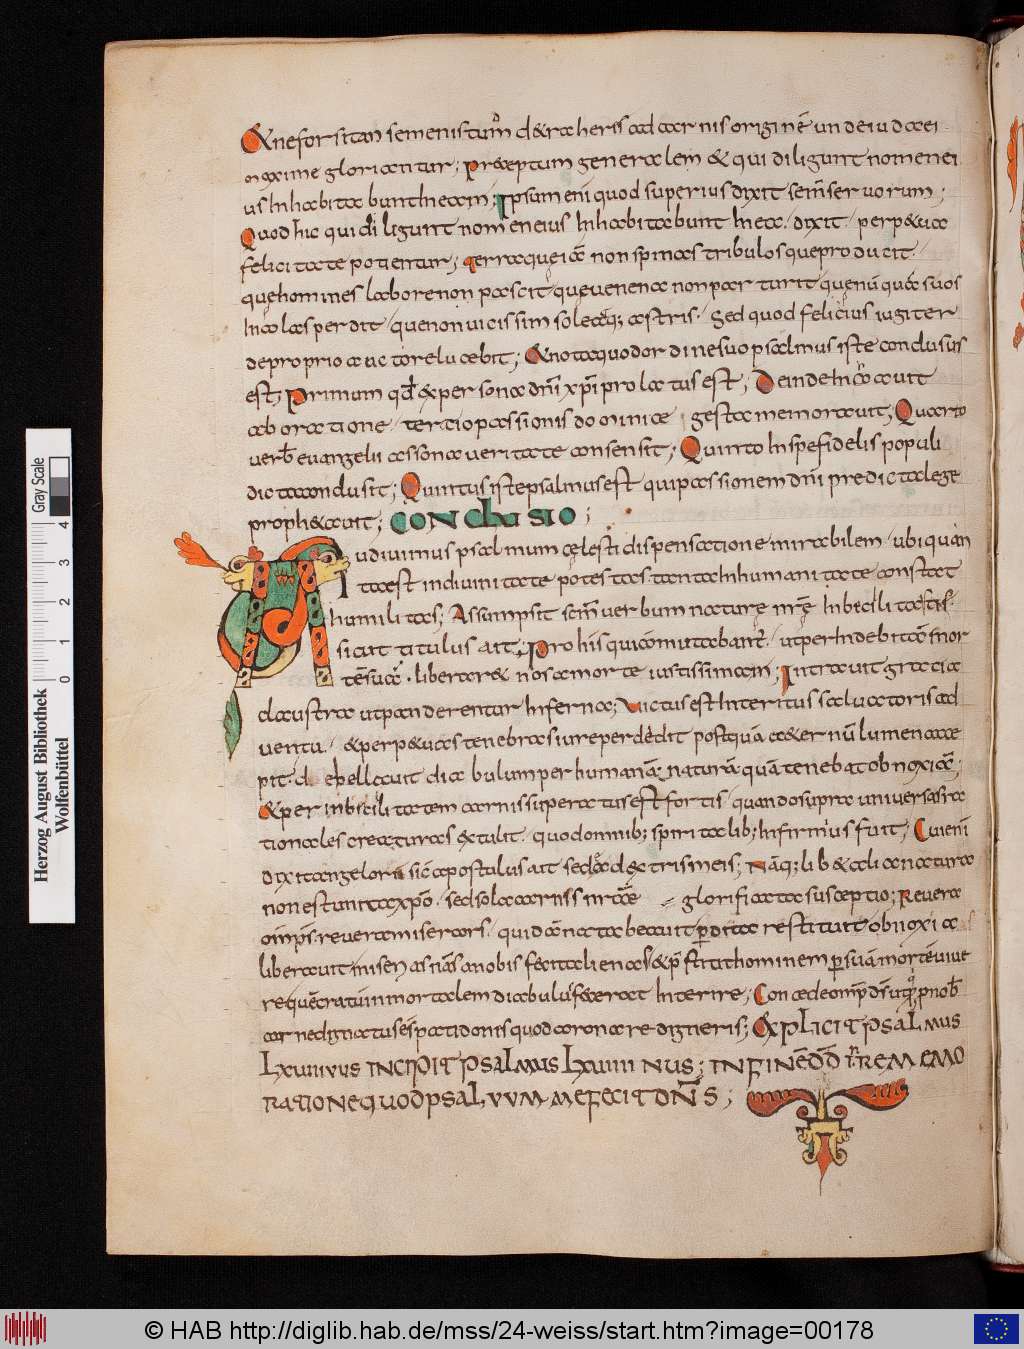 & ne forsitan semen istum̄ & ad heris ad carnis originē unde iudaei
maxime gloriantur; praeceptum generalem & qui diligunt nomen ei
us Inhabitabunt In eam; Ipsum enī quod superius dixit semen seruorum;
Quod hic qui diligunt nomen eius Inhabitabunt In ea. dixit. perp&ua
felicitate potientur; terra quęiā non spinas tribulosque producit.
quę homines labore non pascit quę uenena non parturit quę nūquā suos
Incolas perdit. quę non uicissim sole atq; astris. Sed quod felicius iugiter
de proprio auctore lucebit; & nota quod ordine suo psalmus iste conclusus
est; Primum qd̄ ex persona dn̄i xp̄i prolatus est; Deinde Inchoauit
ab oratione. tertio passionis dominicae gesta memorauit; Quarto
uerb̄ euangelii assona ueritate consensit; Quinto In spe fidelis populi
dicta conclusit; Quintus iste psalmus est qui passionem dn̄i predicta lege
proph&auit; CONCLUSIO;
Audiuimus psalmum cęlesti dispensatione mirabilem. ubi quan
ta est in diuinitate potestas. tanta In humanitate constat
humilitas; Assumpsit scm̄ uerbum naturę nr̄ę Inbecillitatis.
sicut titulus ait; Pro his qui cōmutabant̄. ut per Indebitā mor
tē suā. liberar& nos a morte iustissimam; Intrauit gratia
claustra ut panderentur Inferna; Uictus est Interitus saluatoris ad
uentu. & perp&uas tenebras iure perdèdit postquā & aeternū lumen acce
pit. debellauit diabulum per humanā naturā quā tenebat obnoxiā;
& per inbecillitatem carnis superatus est fortis. quando supra uniuersas ra
tionales creaturas extulit. quod omnib; spiritalib; Infirmius fuit; Cui enī
dixit angelorū sic̄ apostulus ait sede ad dextris meis; Nāq; lib& caeli a natura
non est unita xp̄o. sed sola carnis nr̄ae glorificata susceptio; Reuera
omp̄s. reuera misericors. qui dānata beauit pdita restituit obnoxia
liberauit miserias nr̄as a nobis fecit alienas & p̄stitit hominem p suā mortē uiue
re quē creatū inmortalem diabulus fecerat Interire; Concede omp̄ ds̄ ut q pnob̄
carne dignatus es pati donis quod corona redigneris; EXPLICIT PSALMUS
LXVIII VUS INCIPIT PSALMUS LXVIIII NUS; IN FINĒ DD̄ IN REMEMO
RATIONE QUOD PSALVVM ME FECIT DN̄S;
Herzog August Bibliothek
Wolfenbüttel
Gray Scale
0 1 2 3 4
© HAB http://diglib.hab.de/mss/24-weiss/start.htm?image=00178